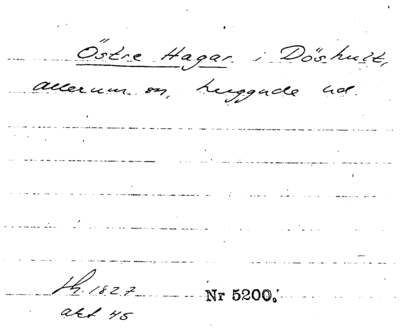 Östre Hagar i Döshult,
allerum sn, huggude ud.
lh. 1827 Nr 5200.
akt 45